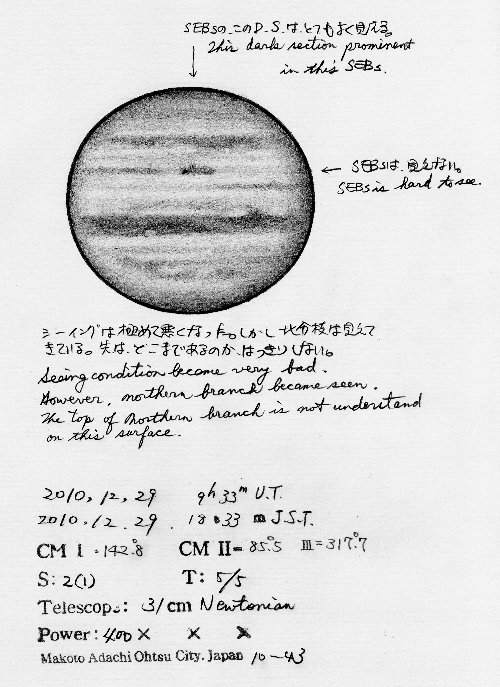 SEBsの、このD.S.は、とてもよく見える。
This dark section prominent
in this SEBs.
← SEBsは、見えない。
SEBs is hard to see.
シーイングは極めて悪くなった。しかし 北分枝は見えて
きている。先は、どこまであるのか、はっきりしない。
Seeing condition became very bad.
However, northern branch became seen.
The top of Northern branch is not understand
on this surface.
2010, 12, 29 9h 33m U.T.
2010, 12. 29. 18 h 33 m J.S.T.
CM I = 142.°8 CM II= 85.°5 III = 317.°7
S: 2(1) T: 5/5
Telescope: 31cm Newtonian
Power: 400× × ×
Makoto Adachi Ohtsu City. Japan 10-43